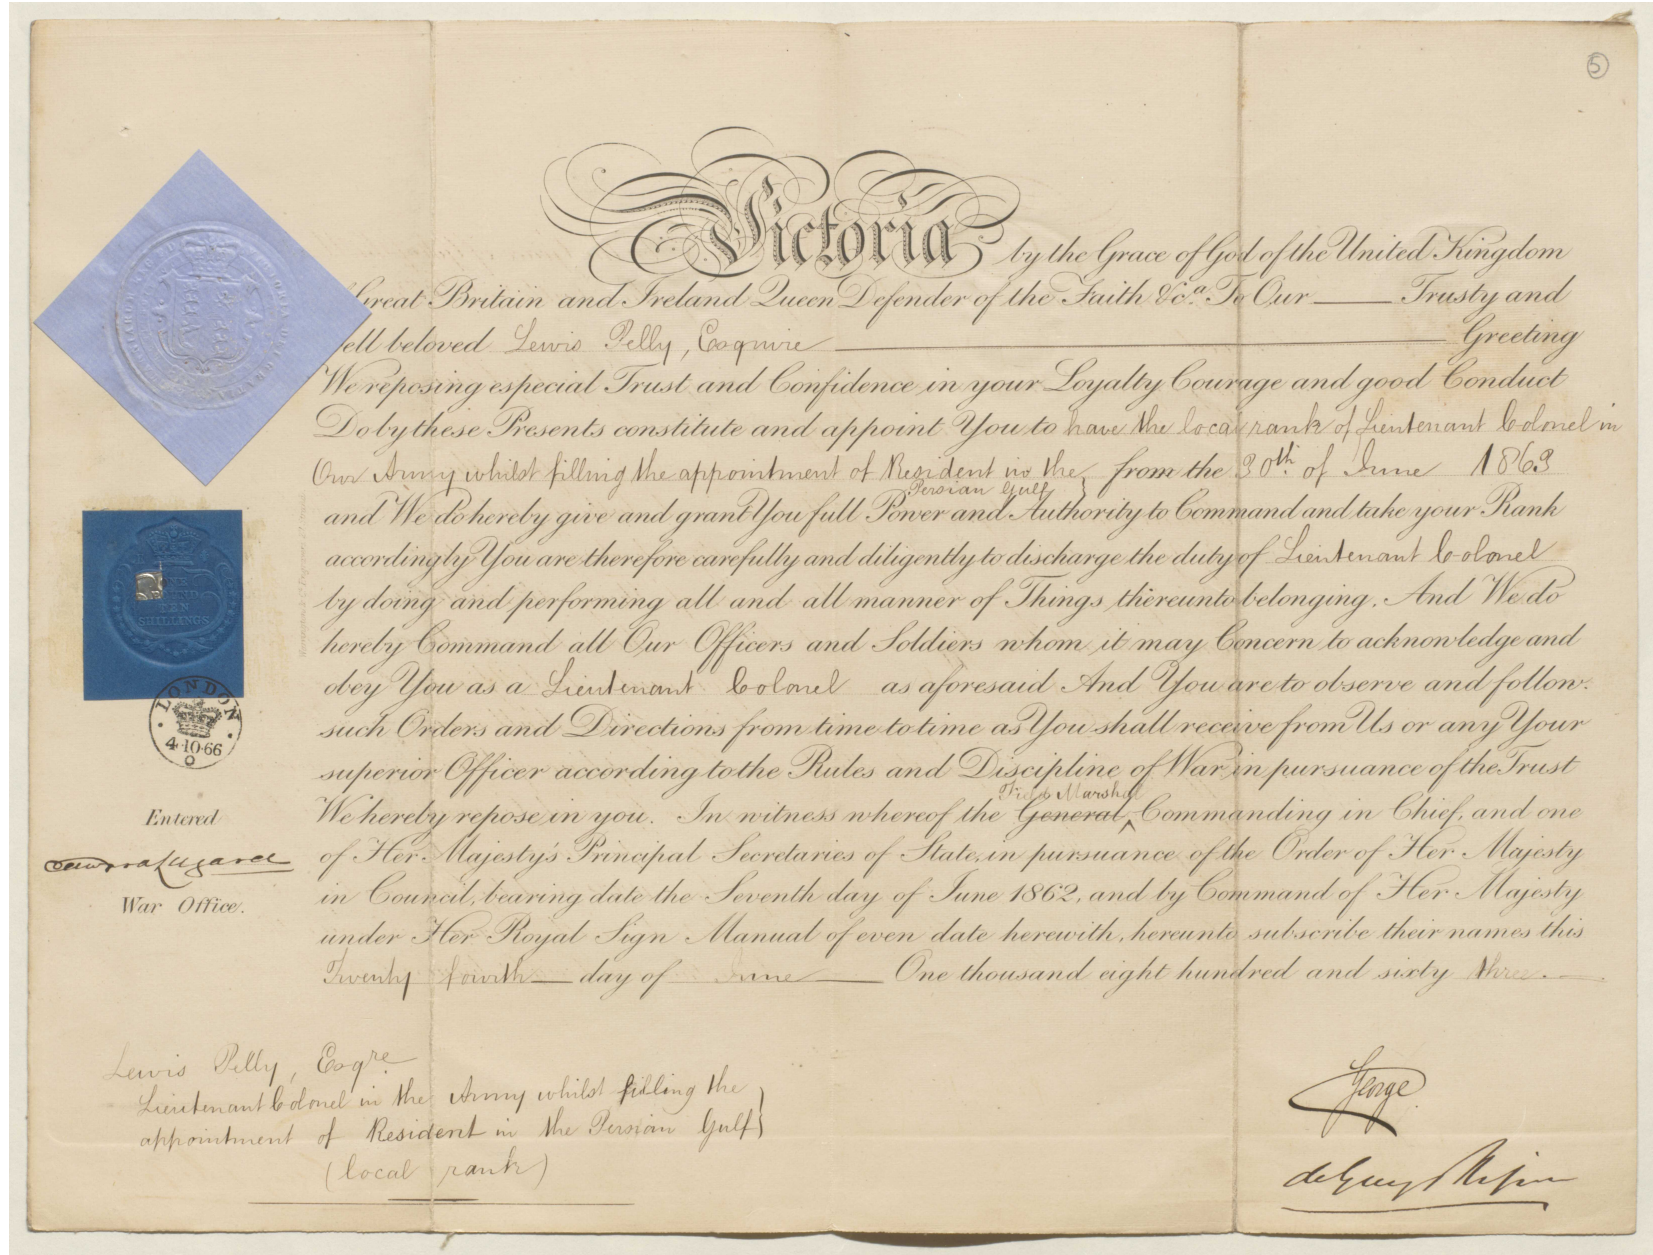 5
Victoria by the Grace of God of the United Kingdom
Great Britain and Ireland Queen Defender of the Faith &c.a To Our Trusty and
ell beloved Lewis Pelly, Esquire Greeting
We reposing especial Trust and Confidence in your Loyalty Courage and good Conduct
Do by these Presents constitute and appoint You to have the local rank of Lieutenant Colonel in
Our Army whilst filling the appointment of Resident in the from the 30th. of June 1863
Persian Gulf }
and We do hereby give and grant You full Power and Authority to Command and take your Rank
accordingly You are therefore carefully and diligently to discharge the duty of Lieutenant Colonel
by doing and performing all and all manner of Things thereunto belonging. And We do
hereby Command all Our Officers and Soldiers whom it may Concern to acknowledge and
obey You as a Lieutenant Colonel as aforesaid And You are to observe and follow
such Orders and Directions from time to time as You shall receive from Us or any Your
superior Officer according to the Rules and Discipline of War, in pursuance of the Trust
Field Marshal
We hereby repose in you. In witness whereof the General Commanding in Chief, and one
of Her Majesty's Principal Secretaries of State, in pursuance of the Order of Her Majesty
in Council, bearing date the Seventh day of June 1862, and by Command of Her Majesty
under Her Royal Sign Manual of even date herewith, hereunto subscribe their names this
Twenty fourth day of June One thousand eight hundred and sixty three.
ONE
POUND
TEN
SHILLINGS
LONDON
4·10·66
O
Entered
War Office.
Lewis Pelly, Esqre.
Lieutenant Colonel in the Army whilst filling the
appointment of Resident in the Persian Gulf }
(local rank)
George
de Grey & Ripon